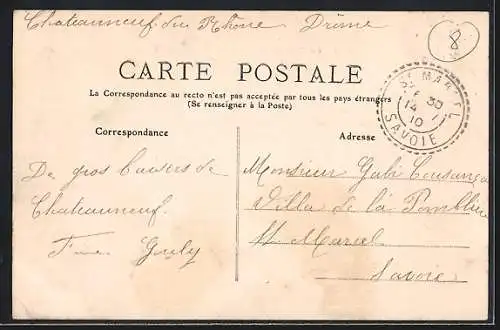 Chateauneuf du Rhône Drôme
8
CARTE POSTALE
La Correspondance au recto n'est pas acceptée par tous les pays étrangers
(Se renseigner à la Poste)
ST MARCEL
30
14
10
SAVOIE
Correspondance
Adresse
De gros baisers de
Chateauneuf.
Monsieur Gabi
Villa de la
St Marcel
Savoie